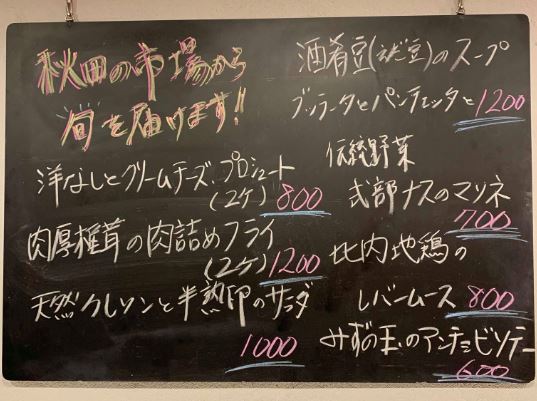 秋田の市場から
旬を届けます!!
洋なしとクリームチーズ、プロシュート
(2ケ) 800
肉厚椎茸の肉詰めフライ
(2ケ) 1200
天然クレソンと半熟卵のサラダ
1000
酒肴豆(えだ豆)のスープ
ブッラータとパンチェッタと 1200
伝統野菜
式部ナスのマリネ
700
比内地鶏の
レバームース 800
みずの玉のアンチョビソテー
600